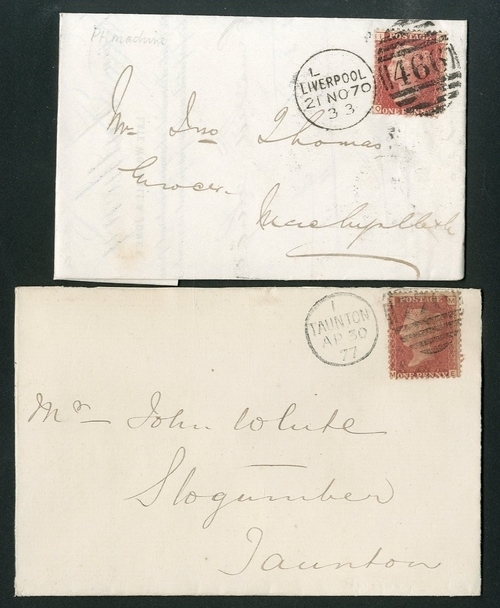 Pt. machine
L
LIVERPOOL
21 NO 70
33
POSTAGE
466
ONE PENNY
Mr Jno Thomas
Grocer
Machynlleth
1
TAUNTON
AP 30
77
POSTAGE
ONE PENNY
Mr John White
Stogumber
Taunton